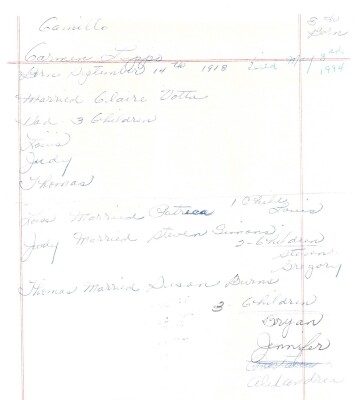 Camielo
8th Born
Carmen Tippo
Born September 14th 1918 Died May 8th 1994
Married Claire Votta
Had 3 Children
Louis
Judy
Thomas
Louis Married Patricia 1 Child Louis
Judy Married Steven Simons
2 - Children
Steven
Gregory
Thomas Married Susan Burns
3 - Children
Bryan
Jennifer
Alexandria